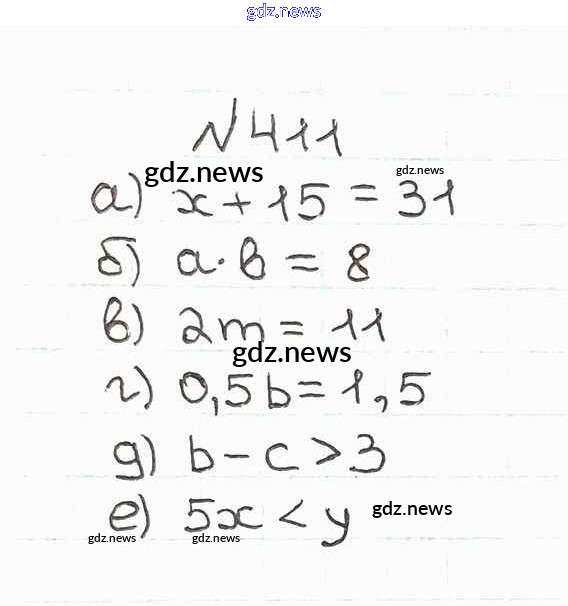 gdz.news
N411
gdz.news
gdz.news
а) x + 15 = 31
б) a · b = 8
в) 2m = 11
gdz.news
г) 0,5b = 1,5
д) b - c > 3
е) 5x < y
gdz.news
gdz.news
gdz.news